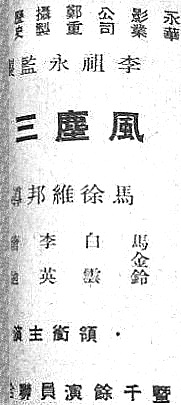 永華影業公司鄭重攝製歷史
李祖永監製
風塵三
馬徐維邦導
馬金鈴 白雲 李英
·領銜主演
暨千餘演員聯合